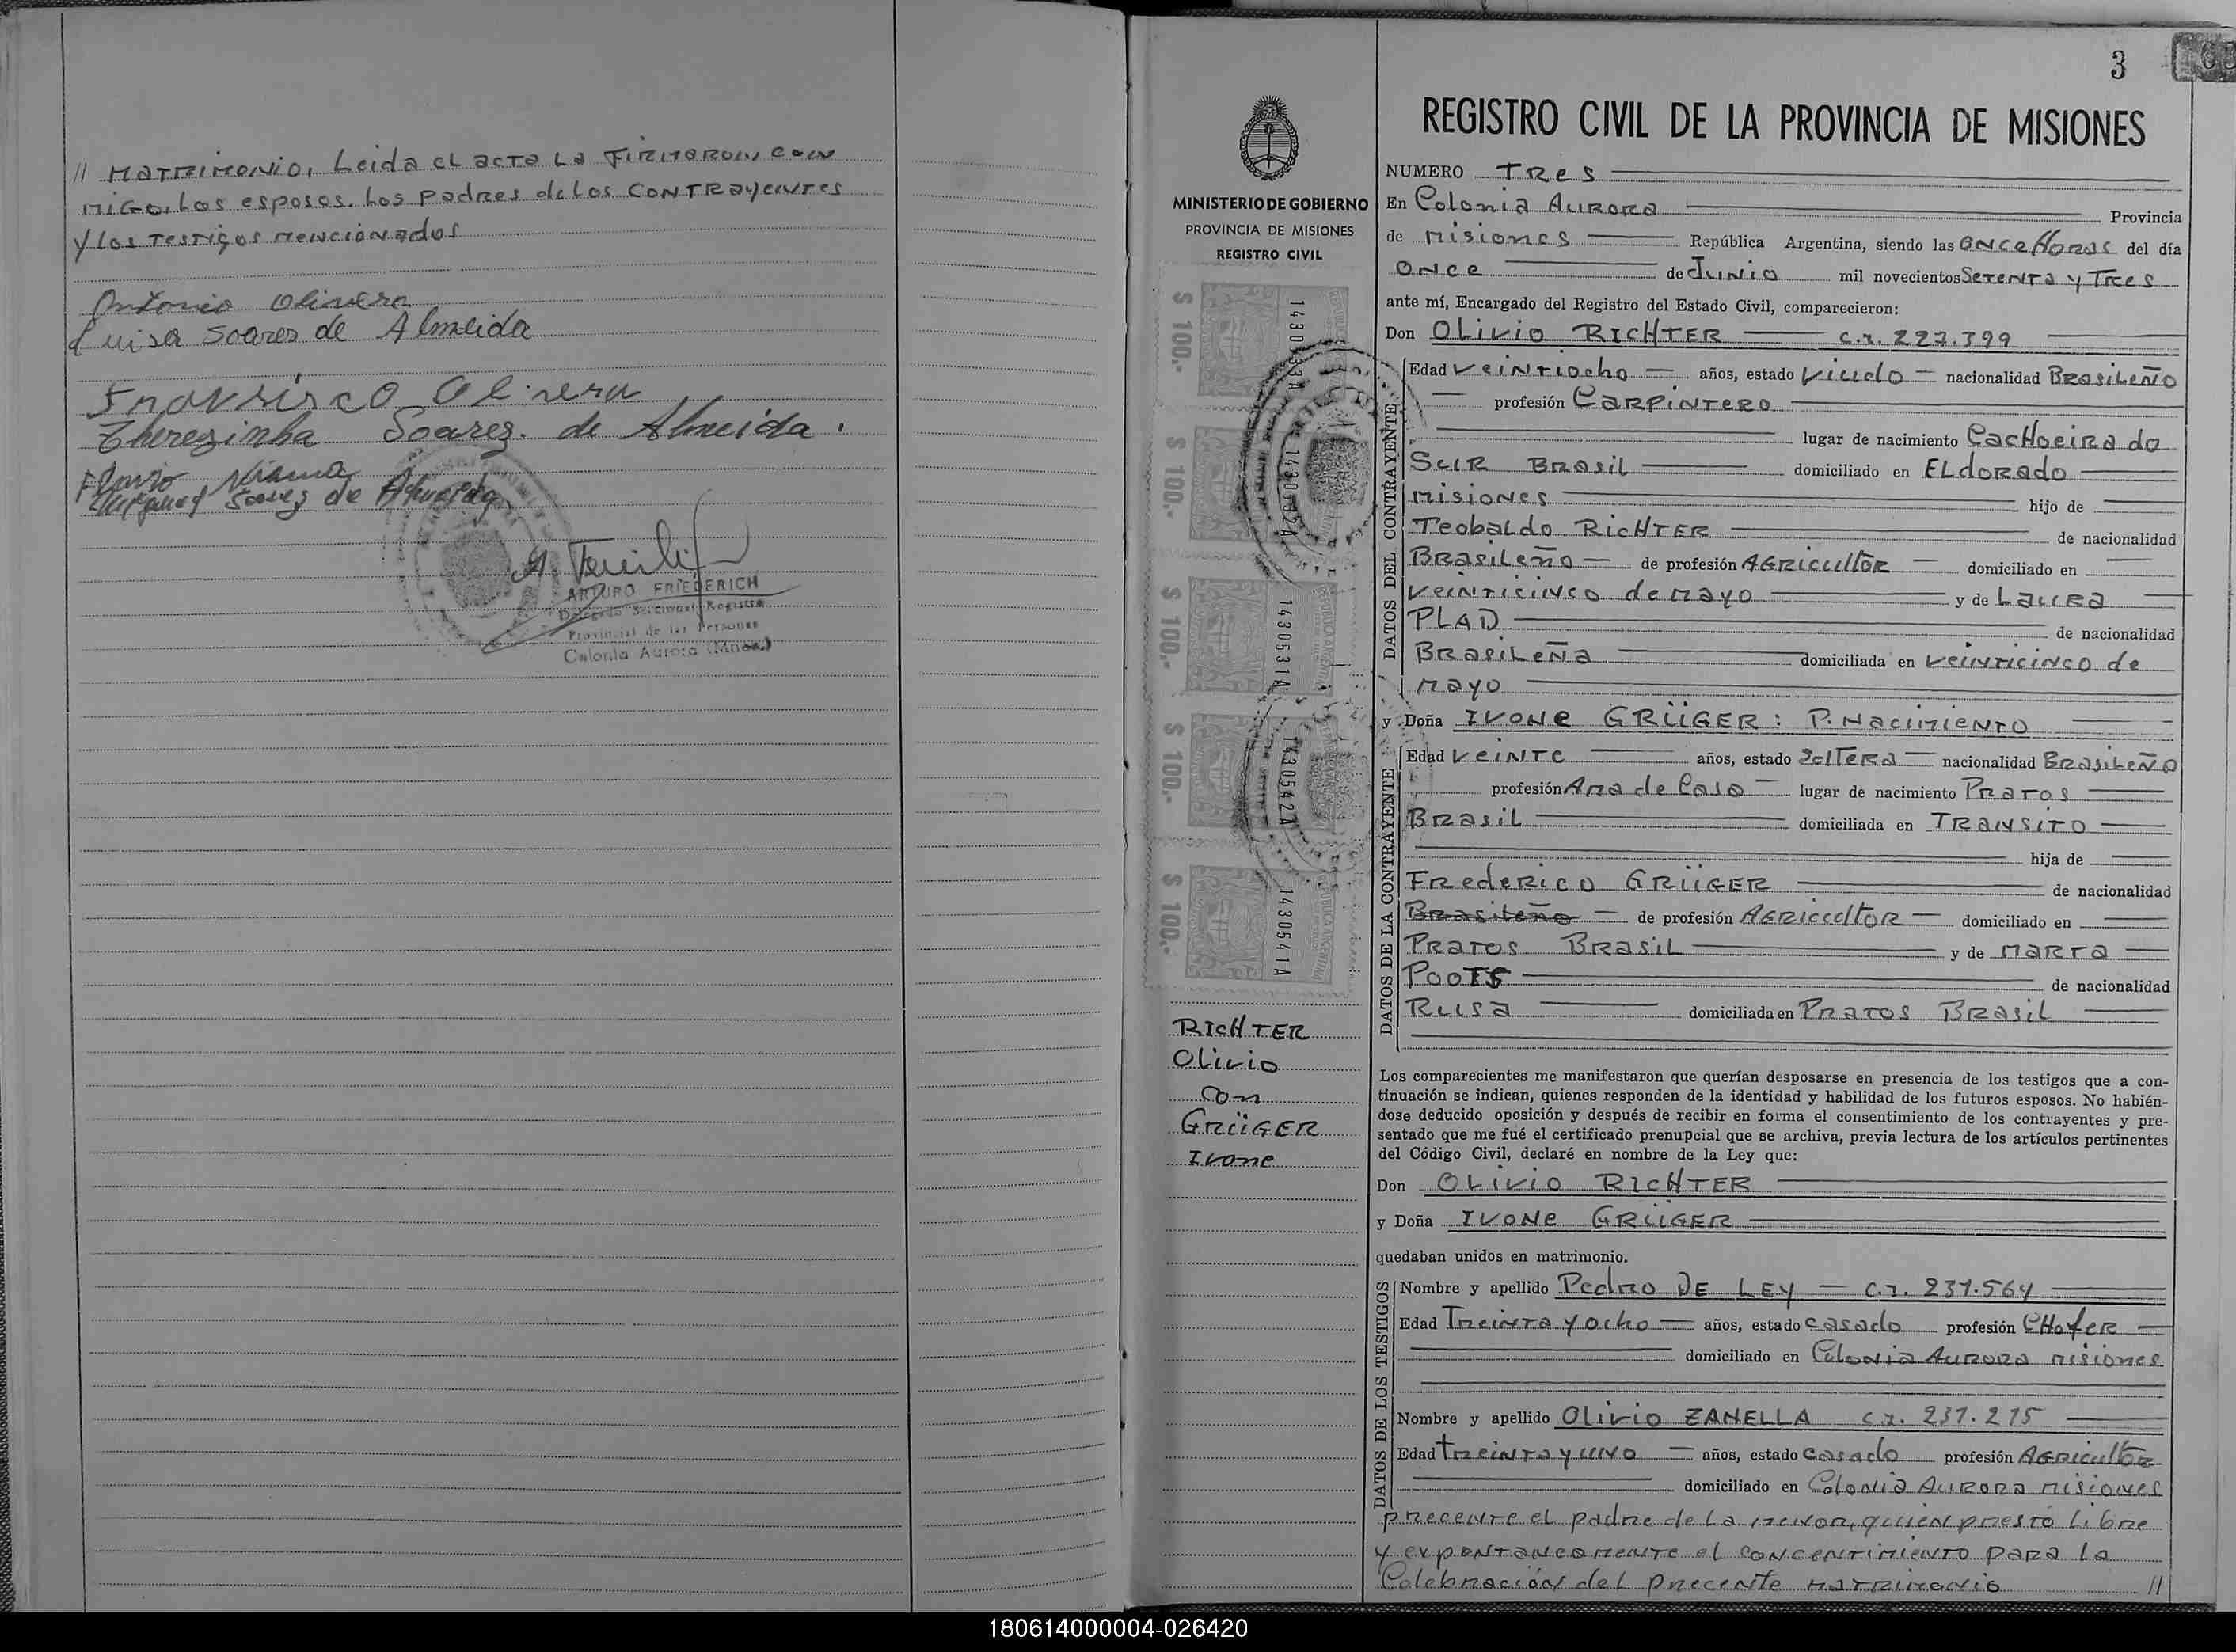 // Matrimonio, Leida el acta la firmaron con
migo, los esposos. los padres de los contrayentes
y los testigos mencionados
Antonio Olivera
Luisa Soares de Almeida
Olivera
Therezinha Soarez. de Almeida.
Soarez de Almeida
ARTURO FRIEDERICH
Provincial de las Personas
Colonia Aurora (Mnes.)
3
REGISTRO CIVIL DE LA PROVINCIA DE MISIONES
MINISTERIO DE GOBIERNO
PROVINCIA DE MISIONES
REGISTRO CIVIL
$ 100.-
$ 100.-
$ 100.-
1430531A
$ 100.-
1430542A
$ 100.-
1430541A
RICHTER
Olivio
Con
GRÜGER
Ivone
NUMERO Tres
En Colonia Aurora Provincia
de Misiones República Argentina, siendo las once Horas del día
once de Junio mil novecientos Setenta y Tres
ante mí, Encargado del Registro del Estado Civil, comparecieron:
Don OLIVIO RICHTER C.I. 227.399
DATOS DEL CONTRAYENTE
Edad Veintiocho años, estado Viudo nacionalidad Brasileño
profesión Carpintero
lugar de nacimiento Cachoeira do
Sur Brasil domiciliado en ELdorado
Misiones hijo de
Teobaldo RICHTER de nacionalidad
Brasileño de profesión Agricultor domiciliado en
Veinticinco de Mayo y de Laura
PLAD de nacionalidad
Brasileña domiciliada en Veinticinco de
Mayo
y Doña IVONE GRÜGER: P. Nacimiento
DATOS DE LA CONTRAYENTE
Edad Veinte años, estado Soltera nacionalidad Brasileño
profesión Ama de Casa lugar de nacimiento Pratos
Brasil domiciliada en TRANSITO
hija de
Frederico GRÜGER de nacionalidad
Brasileño de profesión Agricultor domiciliado en
Pratos Brasil y de Marta
POOTS de nacionalidad
Rusa domiciliada en Pratos Brasil
Los comparecientes me manifestaron que querían desposarse en presencia de los testigos que a con-
tinuación se indican, quienes responden de la identidad y habilidad de los futuros esposos. No habién-
dose deducido oposición y después de recibir en forma el consentimiento de los contrayentes y pre-
sentado que me fué el certificado prenupcial que se archiva, previa lectura de los artículos pertinentes
del Código Civil, declaré en nombre de la Ley que:
Don OLIVIO RICHTER
y Doña IVONE GRÜGER
quedaban unidos en matrimonio.
DATOS DE LOS TESTIGOS
Nombre y apellido Pedro DE LEY C.I. 231.564
Edad Treinta y ocho años, estado casado profesión CHofer
domiciliado en Colonia Aurora Misiones
Nombre y apellido Olivio ZANELLA C.I. 231.215
Edad treinta y uno años, estado casado profesión Agricultor
domiciliado en Colonia Aurora Misiones
precente el padre de la menor, quien prestó libre
y expontaneamente el concentimiento para la
Celebración del precente matrimonio //
180614000004-026420